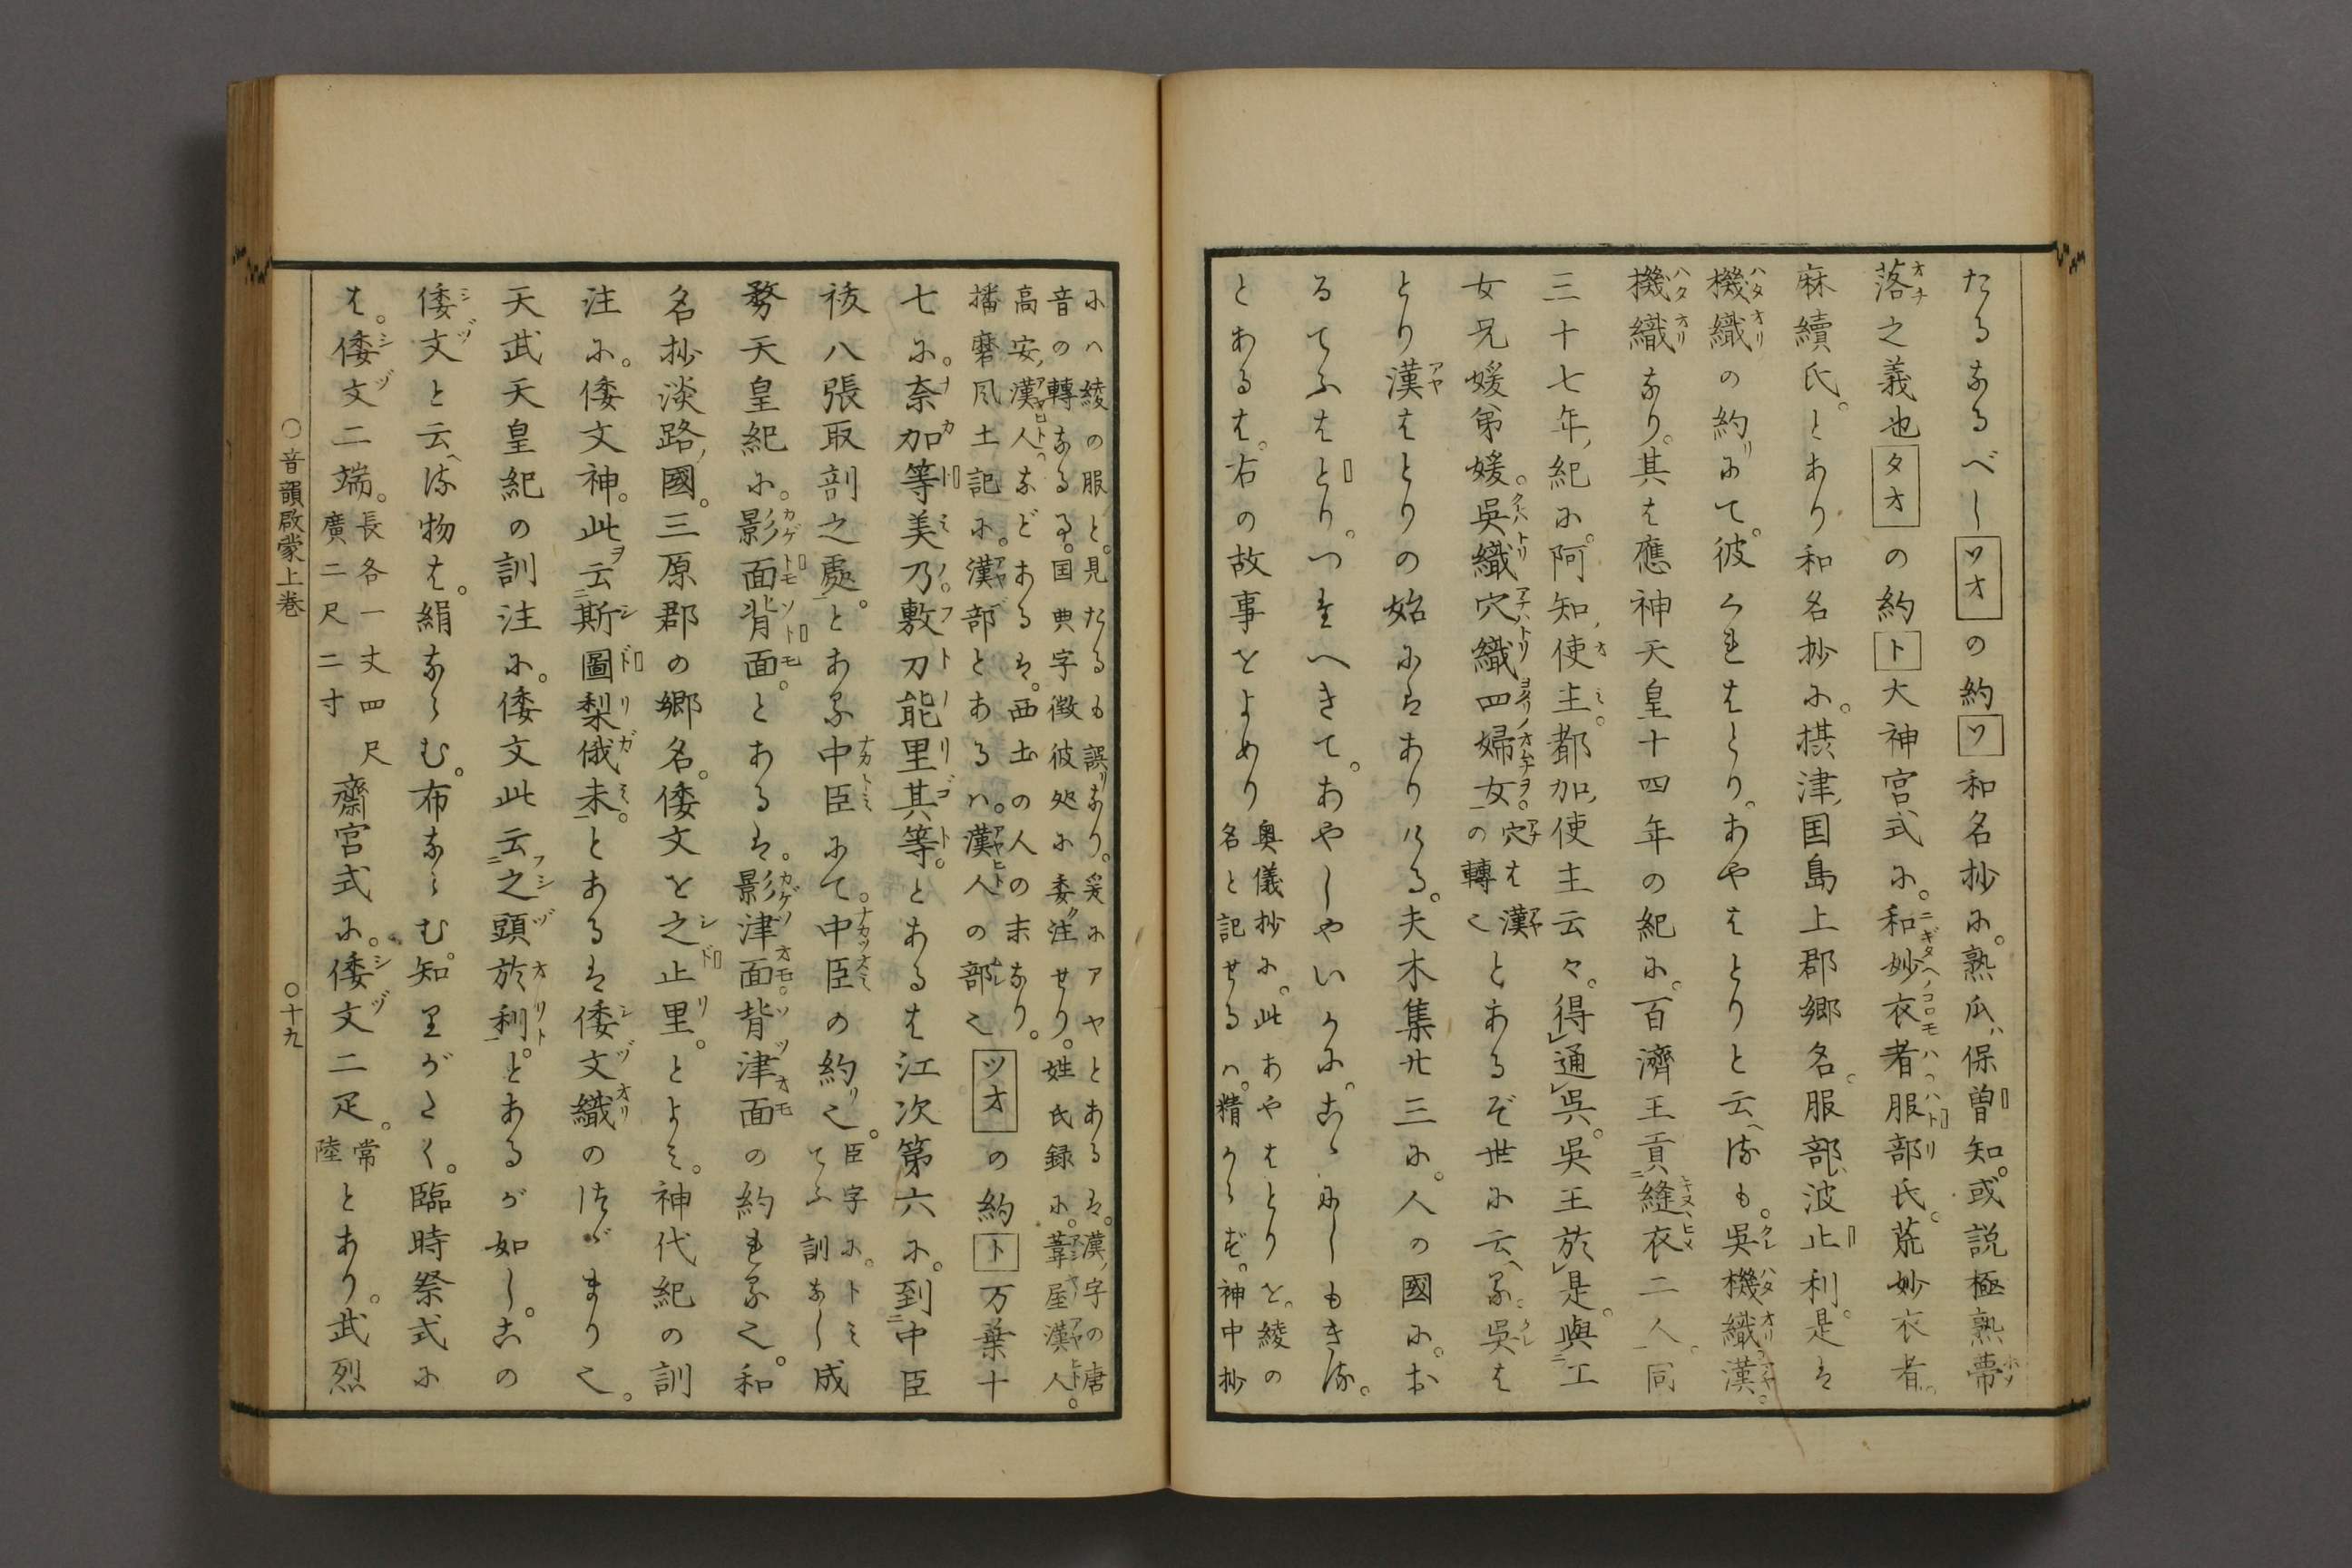 たるなるべしツオの約ツ和名抄に。熟瓜ハ保曽知。或説極熟蔕
落之義也タオの約ト大神宮式に。和妙衣者服部氏。荒妙衣者。
麻續氏。とあり和名抄に。摂津国島上郡郷名。服部波止利。是は
機織の約にて。彼くれはとり。あやはとりと云へるも。呉機織漢。
機織なり。其は應神天皇十四年の紀に。百濟王貢縫衣二人。同
三十七年紀に。阿知使主都加使主云々。得通呉。呉王於是。與工
女兄媛弟媛。呉織穴織四婦女。穴は漢の轉也とあるぞ世に云へる。呉は
とり漢はとりの始にはありける。夫木集廿三に。人の國に。お
るてふはとり。つたへきて。あやしやいかに。こゝにしもきる。
とあるは。右の故事をよめり奥儀抄に。此あやはとりを。綾の
名と記せるハ。精からず。神中抄
にハ綾の服と。見たるも誤りなり。爰にアヤとあるは。漢字の唐
音の轉なる事。国典字徴彼処に委ク注せり。姓氏録に。葦屋漢人。
高安漢人。などあるは。西土の人の末なり。
播磨風土記に。漢部とあるハ。漢人の部也ツオの約ト万葉十
七に。奈加等美乃敷刀能里其等。とあるは江次第六に。到中臣
祓八張取剖之處。とある中臣にて。中臣の約り也。臣字に。トミ
てふ訓なし成
務天皇紀に。影面背面。とあるは。影津面背津面の約れる也。和
名抄淡路國。三原郡の郷名。倭文を之止里。とよみ。神代紀の訓
注に。倭文神。此云斯圖梨俄未とあるは倭文織のつゞまり也。
天武天皇紀の訓注に。倭文此云之頭於利。とあるが如し。この
倭文と云へる物は。絹ならむ。布ならむ。知りがたく。臨時祭式に
は。倭文二端。長各一丈四尺
廣二尺二寸齋宮式に。倭文二疋。常
陸とあり。武烈
○音韻啟蒙上巻
○十九